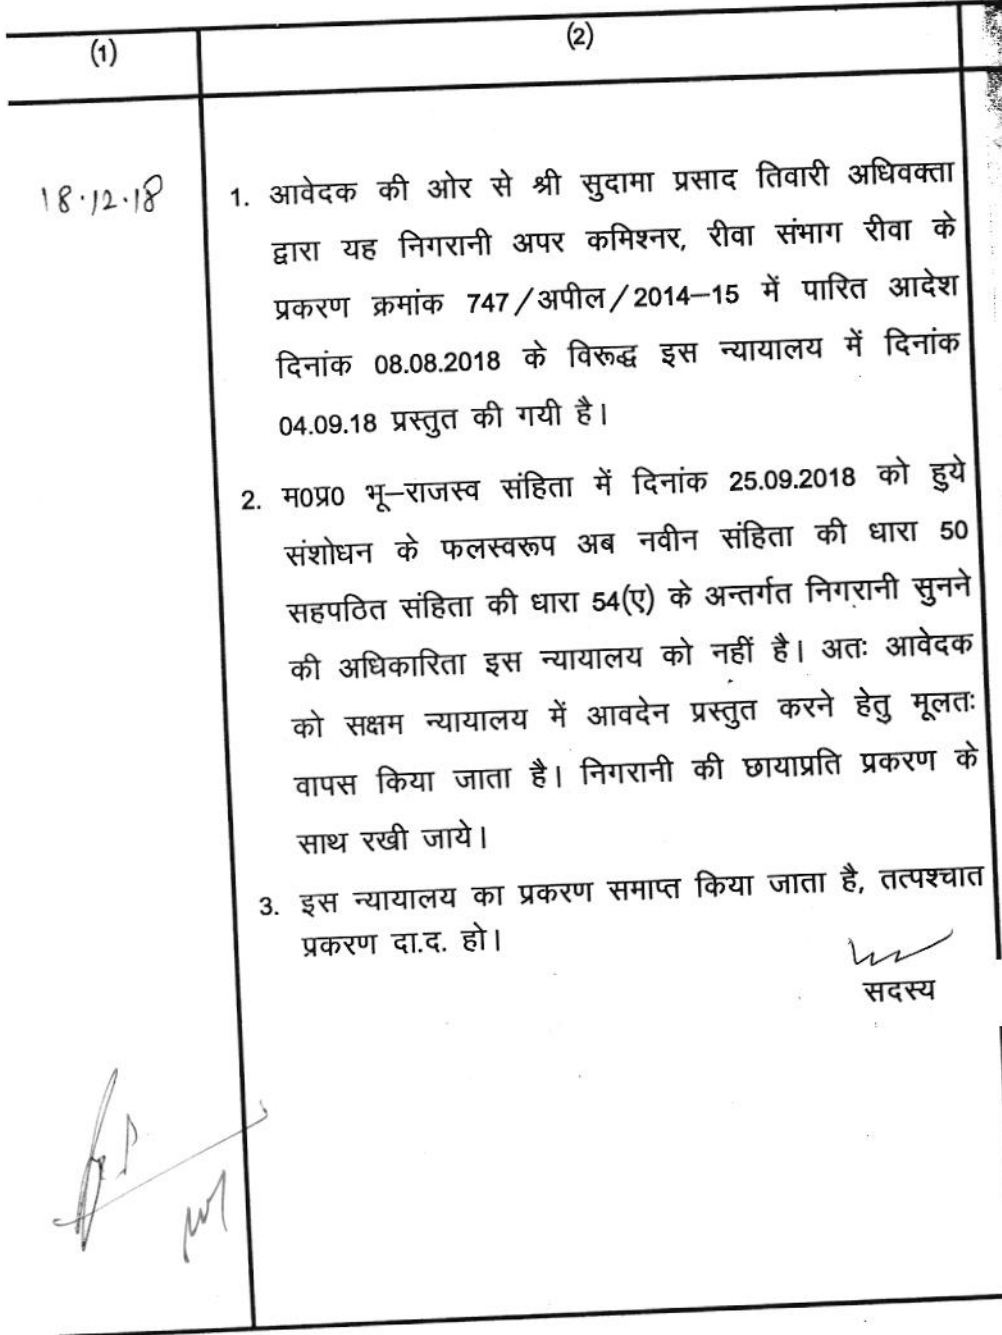 (1)
(2)
18.12.18
1. आवेदक की ओर से श्री सुदामा प्रसाद तिवारी अधिवक्ता
द्वारा यह निगरानी अपर कमिश्नर, रीवा संभाग रीवा के
प्रकरण क्रमांक 747/अपील/2014–15 में पारित आदेश
दिनांक 08.08.2018 के विरूद्ध इस न्यायालय में दिनांक
04.09.18 प्रस्तुत की गयी है।
2. म0प्र0 भू–राजस्व संहिता में दिनांक 25.09.2018 को हुये
संशोधन के फलस्वरूप अब नवीन संहिता की धारा 50
सहपठित संहिता की धारा 54(ए) के अन्तर्गत निगरानी सुनने
की अधिकारिता इस न्यायालय को नहीं है। अतः आवेदक
को सक्षम न्यायालय में आवदेन प्रस्तुत करने हेतु मूलतः
वापस किया जाता है। निगरानी की छायाप्रति प्रकरण के
साथ रखी जाये।
3. इस न्यायालय का प्रकरण समाप्त किया जाता है, तत्पश्चात
प्रकरण दा.द. हो।
सदस्य